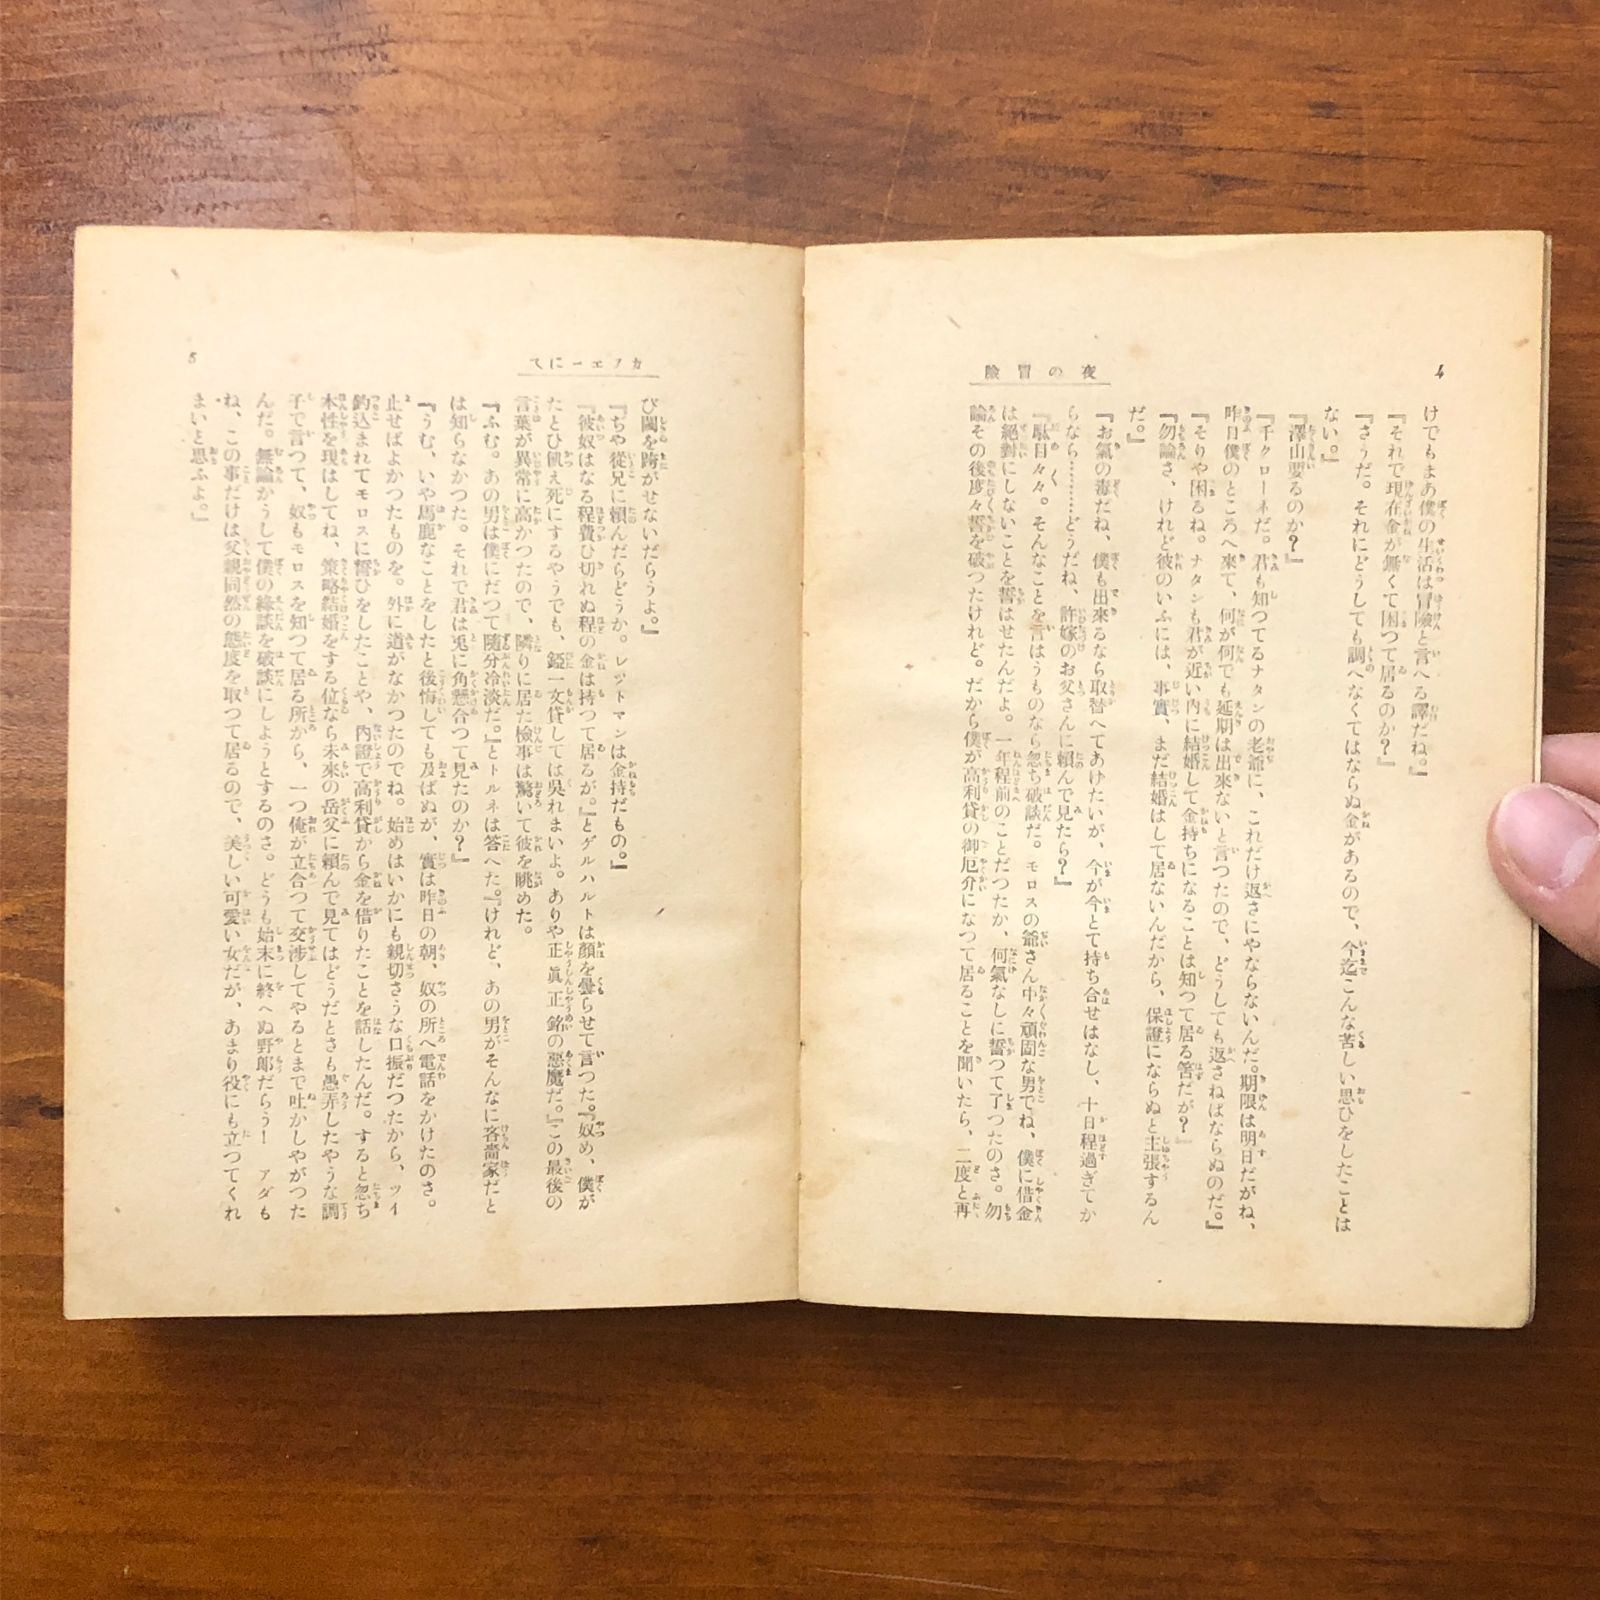 4
夜の冒險
けでもまあ僕の生活は冒險と言へる譯だね。』
『それで現在金が無くて困つて居るのか?』
『さうだ。それにどうしても調へなくてはならぬ金があるので、今迄こんな苦しい思ひをしたことは
ない。』
『澤山要るのか?』
『千クローネだ。君も知つてるナタンの老爺に、これだけ返さにやならないんだ。期限は明日だがね、
昨日僕のところへ來て、何が何でも延期は出來ないと言つたので、どうしても返さねばならぬのだ。』
『そりや困るね。ナタンも君が近い内に結婚して金持ちになることは知つて居る筈だが?』
『勿論さ、けれど彼のいふには、事實、まだ結婚はして居ないんだから、保證にならぬと主張するん
だ。』
『お氣の毒だね、僕も出來るなら取替へてあけたいが、今が今とて持ち合せはなし、十日程過ぎてか
らなら………どうだね、許嫁のお父さんに頼んで見たら?』
『駄目々々。そんなことを言はうものなら忽ち破談だ。モロスの爺さん中々頑固な男でね、僕に借金
は絕對にしないことを誓はせたんだよ。一年程前のことだつたか、何氣なしに誓つて了つたのさ。勿
論その後度々誓を破つたけれど。だから僕が高利貸の御厄介になつて居ることを聞いたら、二度と再
カフエーにて
5
び閾を跨がせないだらうよ。』
『ぢや從兄に頼んだらどうか。レジトマンは金持だもの。』
『彼奴はなる程費ひ切れぬ程の金は持つて居るが。』とゲルハルトは顏を曇らせて言つた。『奴め、僕が
たとひ飢え死にするやうでも、鐚一文貸しては吳れまいよ。ありや正眞正銘の惡魔だ。』この最後の
言葉が異常に高かつたので、隣りに居た檢事は驚いて彼を眺めた。
『ふむ。あの男は僕にだつて隨分冷淡だ。』とトルネは答へた。『けれど、あの男がそんなに吝嗇家だと
は知らなかつた。それでは君は兎に角懸合つて見たのか?』
『うむ、いや馬鹿なことをしたと後悔しても及ばぬが、實は昨日の朝、奴の所へ電話をかけたのさ。
止せばよかつたものを。外に道がなかつたのでね。始めはいかにも親切さうな口振だつたから、ツイ
釣込まれてモロスに誓ひをしたことや、内證で高利貸から金を借りたことを話したんだ。すると忽ち
本性を現はしてね、策略結婚をする位なら未來の岳父に頼んで見てはどうだとさも愚弄したやうな調
子で言つて、奴もモロスを知つて居る所から、一つ俺が立合つて交渉してやるとまで吐かしやがつた
んだ。無論かうして僕の緣談を破談にしようとするのさ。どうも始末に終へぬ野郎だらう! アダも
ね、この事だけは父親同然の態度を取つて居るので、美しい可愛い女だが、あまり役にも立つてくれ
まいと思ふよ。』